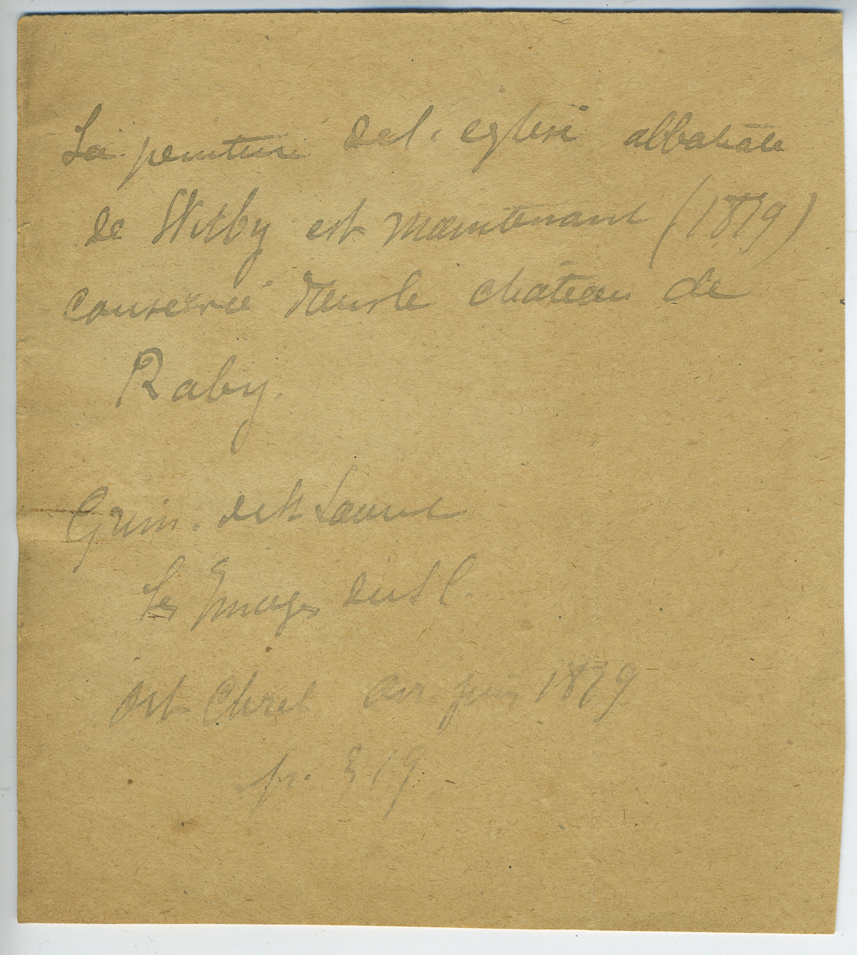 La peinture de l'eglise abbatiale
de Witby est maintenant (1879)
conservée dans le château de
Raby.
Grim. de St Laurent
les Images du S C.
Art Chret avr. juin 1879
p. 319